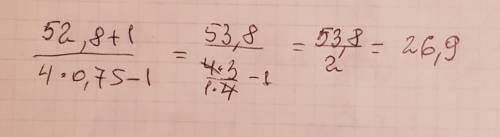 (52,8+1)/(4·0,75-1) = 53,8/((4·3)/(1·4) -1) = 53,8/2 = 26,9